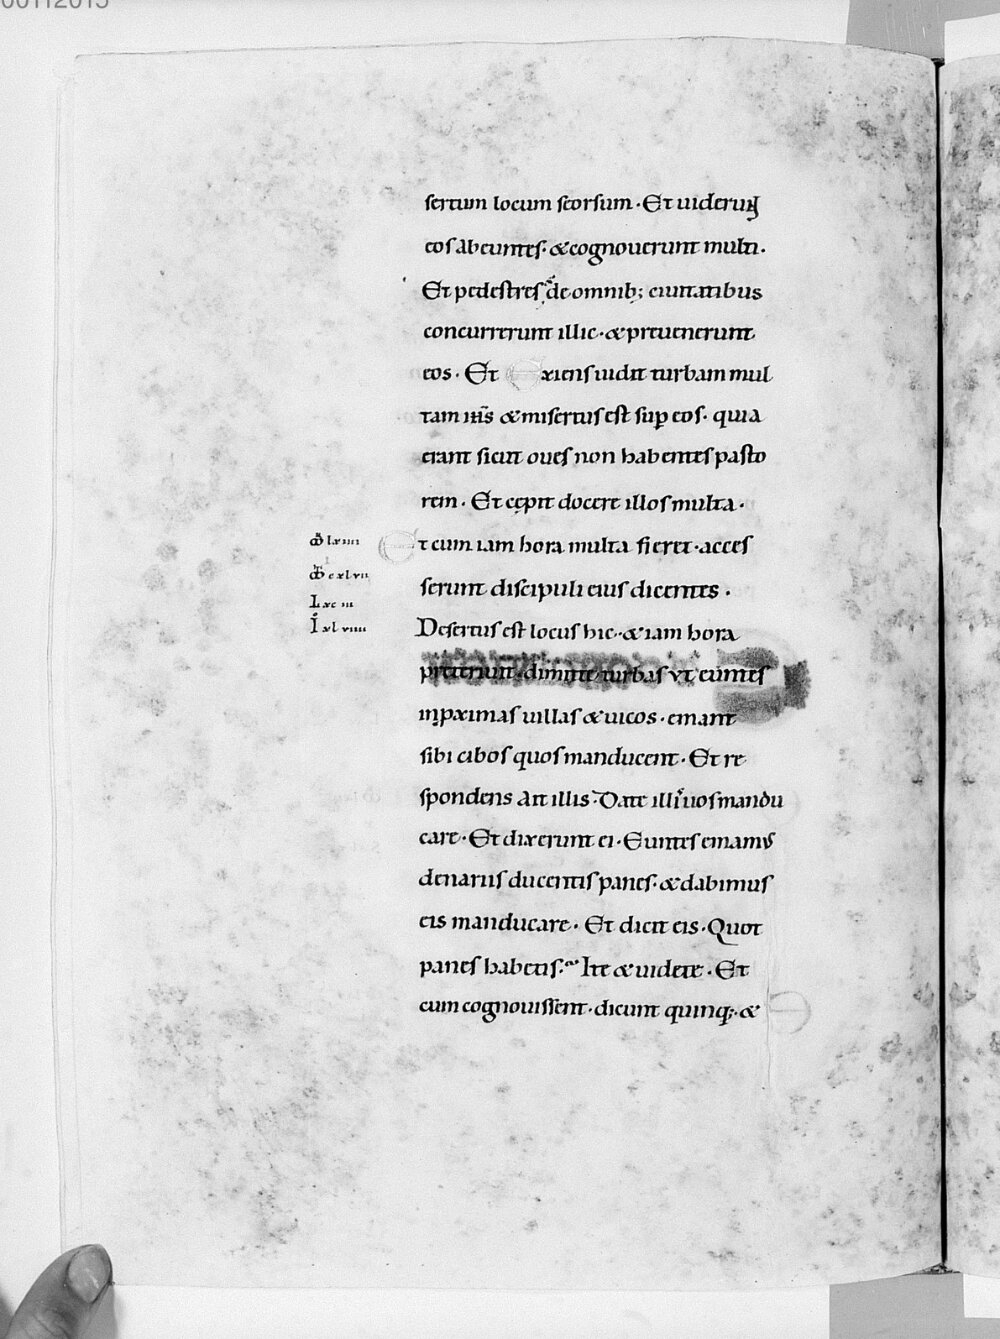 00112015
sertum locum seorsum · Et uiderunt
eos abeuntes · & cognouerunt multi ·
Et pedestres de omnib; ciuitatibus
concurrerunt illic · & preuenerunt
eos · Et exiens uidit turbam mul
tam ih̄s & misertus est sup eos · quia
erant sicut oues non habentes pasto
rem · Et cępit docere illos multa ·
Et cum iam hora multa fieret · acces
serunt discipuli eius dicentes ·
Desertus est locus hic · & iam hora
preteriuit · dimitte turbas ut euntes
in pximas uillas & uicos · emant
sibi cibos quos manducent · Et re
spondens ait illis · Date illi uos mandu
care · Et dixerunt ei · Euntes emamus
denariis ducentis panes · & dabimus
eis manducare · Et dicit eis · Quot
panes habetis · Ite & uidete · Et
cum cognouissent · dicunt quinq; · &
lxiiii
cxlvii
L xc iii
I xlviiii